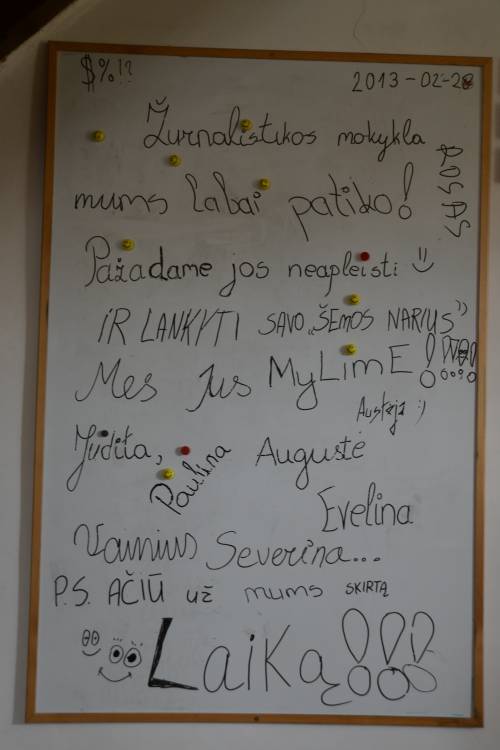 $%!?
2013-02-28
Žurnalistikos mokykla
mums labai patiko!
Pažadame jos neapleisti
IR LANKYTI SAVO „ŠEIMOS NARIUS”
Mes Jus MyLimE!
Austėja :)
Judita, Paulina Augustė
Evelina
Vainius Severina...
P.S. AČIŪ už mums SKIRTĄ
LaiKą!!!